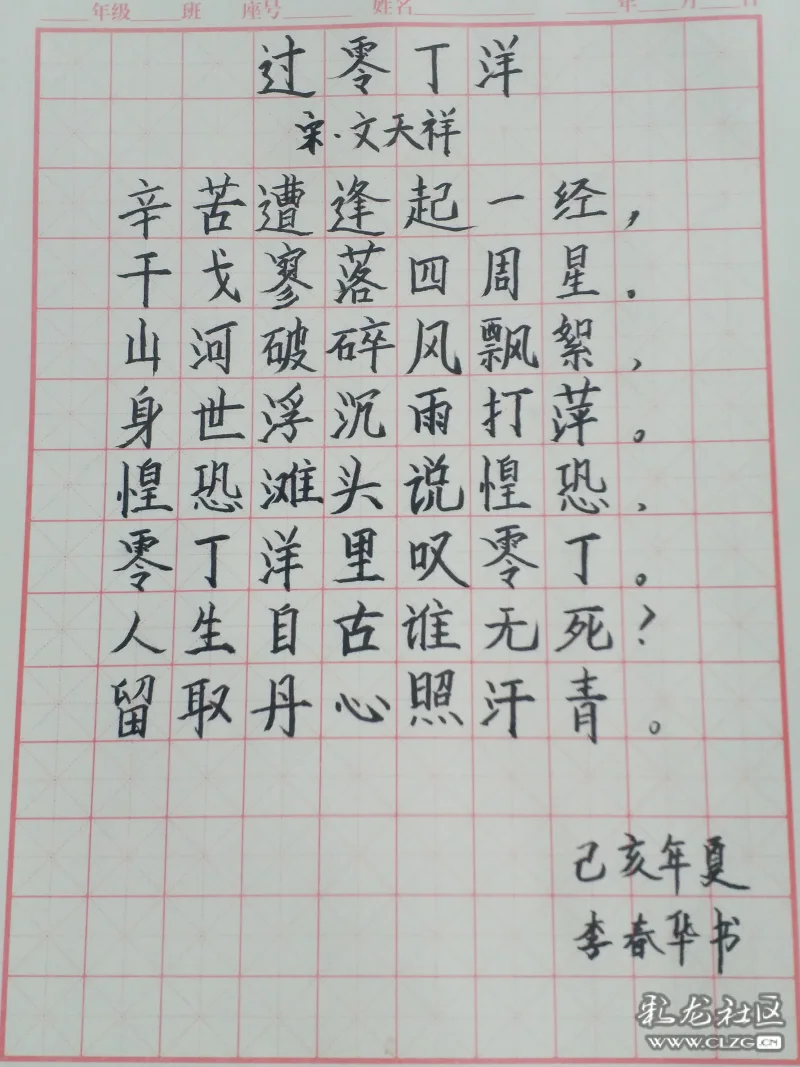 ____年级____班 座号______ 姓名__________ ____年___月___日
过零丁洋
宋·文天祥
辛苦遭逢起一经，
干戈寥落四周星。
山河破碎风飘絮，
身世浮沉雨打萍。
惶恐滩头说惶恐，
零丁洋里叹零丁。
人生自古谁无死？
留取丹心照汗青。
己亥年夏
李春华书
彩龙社区
WWW.CLZG.CN